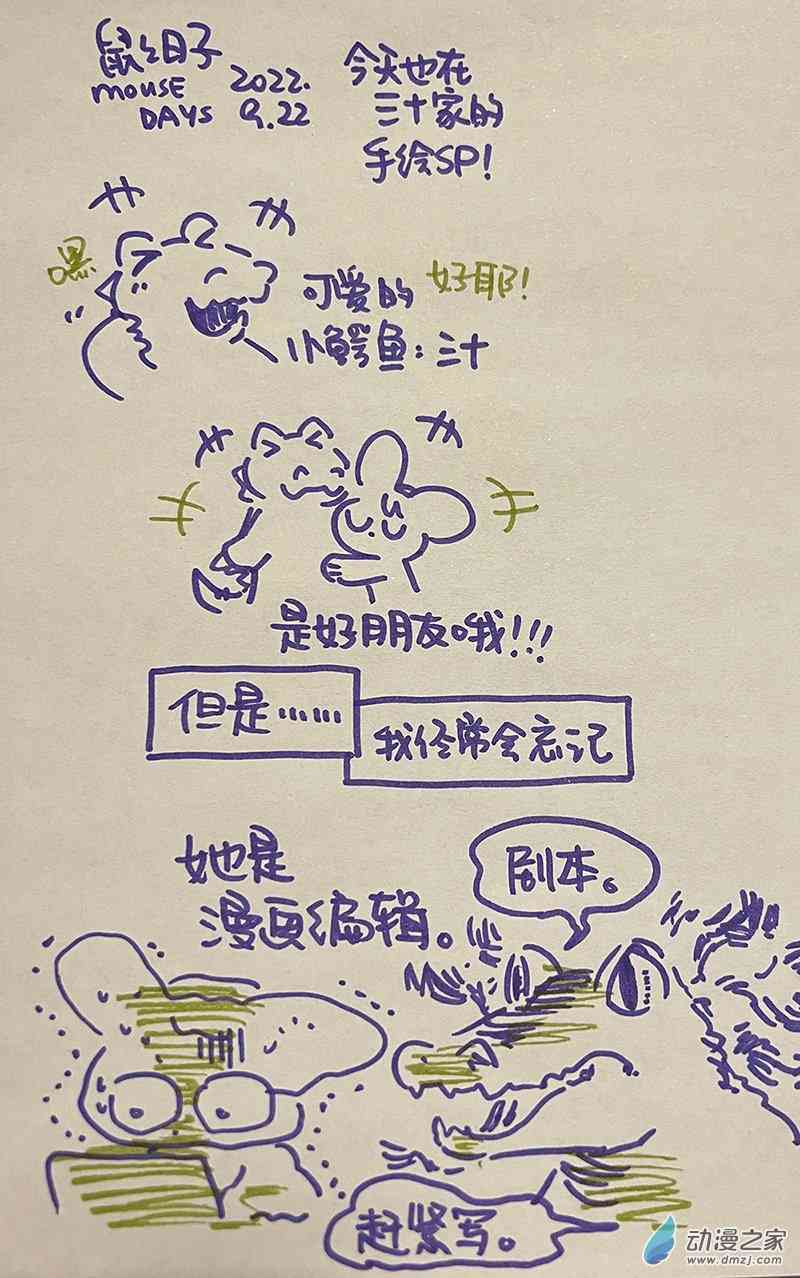 鼠鼠日子
mouse
DAYS
2022.
9.22
今天也在
三十家的
手绘SP!
嘿
好耶!
可爱的
小鳄鱼:三十
是好朋友哦!!!
但是……
我经常会忘记
她是
漫画编辑。
剧本。
赶紧写。
动漫之家
www.dmzj.com